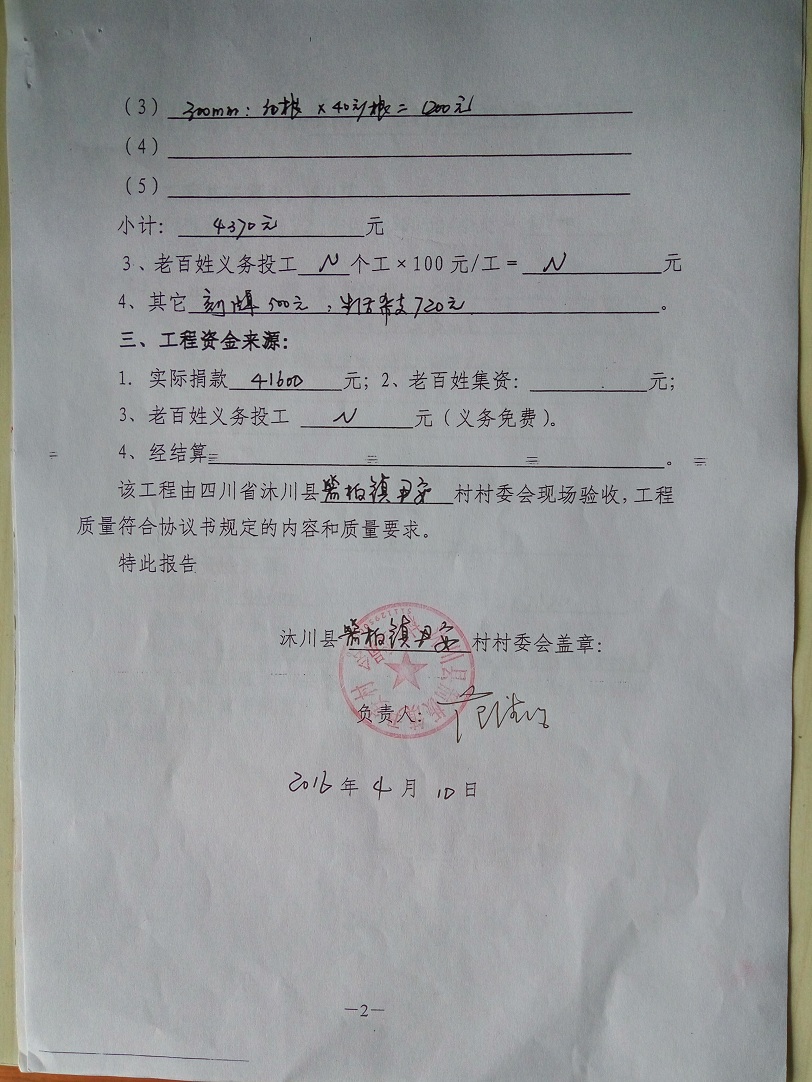 (3) 300mm：30根 × 40元/根 = 1200元
(4)
(5)
小计：4370元 元
3、老百姓义务投工 N 个工×100元/工= N 元
4、其它 刻牌500元，生活杂支720元。
三、工程资金来源：
1. 实际捐款 41600 元；2、老百姓集资： 元；
3、老百姓义务投工 N 元（义务免费）。
4、经结算 。
该工程由四川省沐川县箭板镇尹家村村委会现场验收，工程
质量符合协议书规定的内容和质量要求。
特此报告
沐川县箭板镇 村村委会盖章：
负责人：
2016年4月10日
—2—